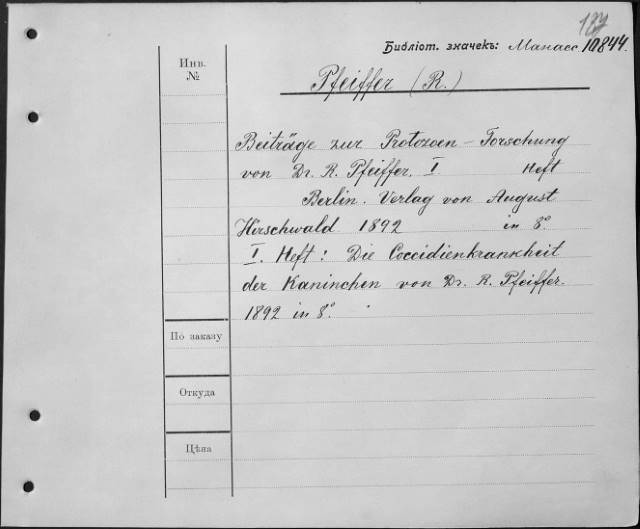 137
Библіот. значекъ: Манасс. 10844.
Инв.
№
Pfeiffer (R.)
Beiträge zur Protozoen-Forschung
von Dr. R. Pfeiffer. I Heft
Berlin. Verlag von August
Hirschwald 1892 in 8°.
I. Heft: Die Coccidienkrankheit
der Kaninchen von Dr. R. Pfeiffer.
1892 in 8°.
По заказу
Откуда
Цѣна